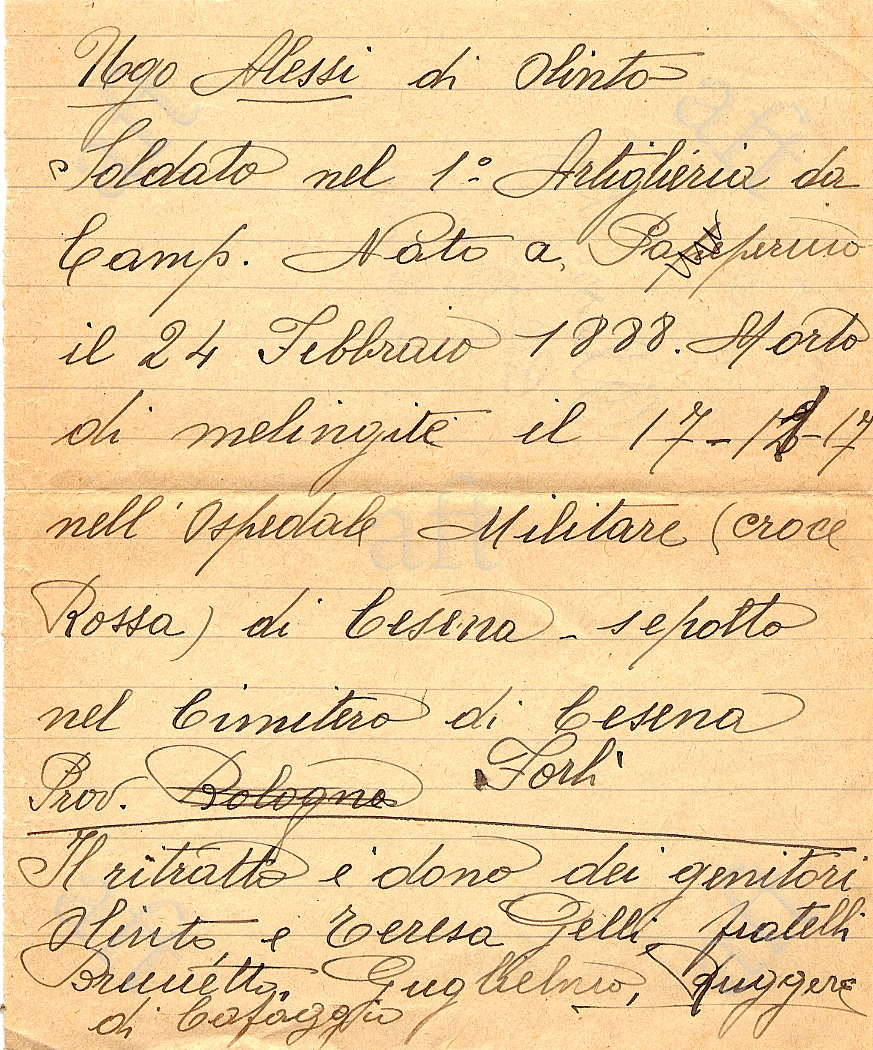 Ugo Alessi di Olinto
Soldato nel 1º Artiglieria da
Camp. Nato a Paperino
il 24 Febbraio 1888. Morto
di melingite il 17-12-17
nell'Ospedale Militare (croce
Rossa) di Cesena - sepolto
nel Cimitero di Cesena
Prov. Bologna Forlì
Il ritratto è dono dei genitori
Olinto e Teresa Gelli, fratelli
Brunetto, Guglielmo, Ruggero
di Cafaggio
aft